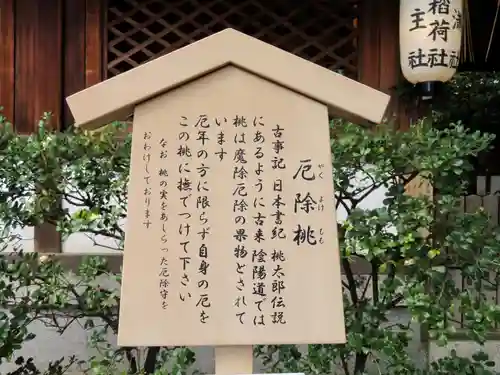 厄除桃
やく よけ もも
古事記 日本書紀 桃太郎伝説
にあるように古来陰陽道では
桃は魔除厄除の果物とされて
います
厄年の方に限らず自身の厄を
この桃に撫でつけて下さい
なお 桃の実をあしらった厄除守を
おわけしております
稲荷社
主社
満
社